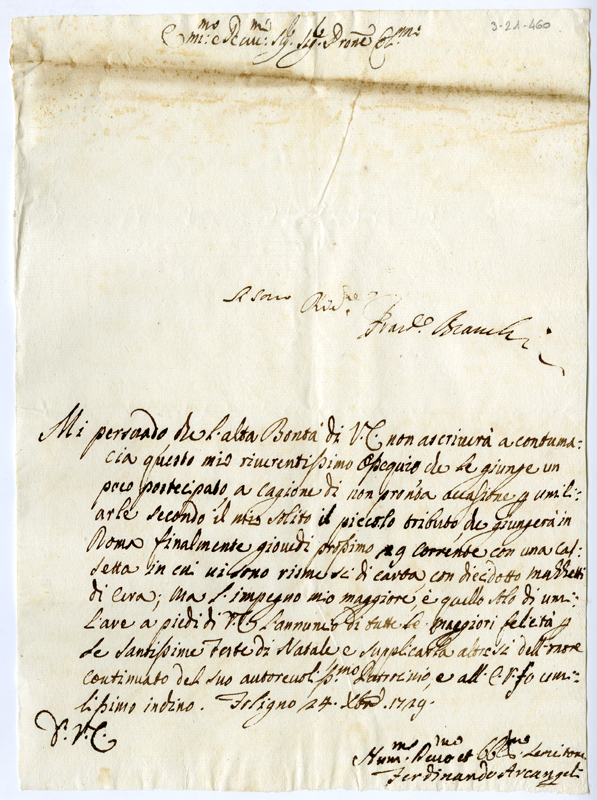 3-21-460
Em.mo e Rev.mo Sig.r Sig.r Prone Col.mo
Mi persuado che l'alta Bontà di V.E. non ascriverà a contuma=
cia questo mio riverentissimo Ossequio che Le giunge un
poco posticipato a cagione di non pronta occasione p umili=
arle secondo il mio solito il piccolo tributo, che giungerà in
Roma finalmente giovedì prossimo 29 corrente con una Cas=
setta in cui vi sono risme sei di carta con dieciotto mazzetti
di Cera; Ma l'impegno mio maggiore, è quello solo di umi=
liare a piedi di V.E. l'annuncio di tutte le maggiori felicità p
le Santissime Feste di Natale e supplicarla altresì dell'onore
continuato del suo autorevolis.mo Patrocinio, e all'E.V. fo umi=
lissimo inchino. Foligno 24. Xbre 1729.
V.E.
Hum.mo Dev.mo et Obb.mo Servitore
Ferdinando Arcangeli